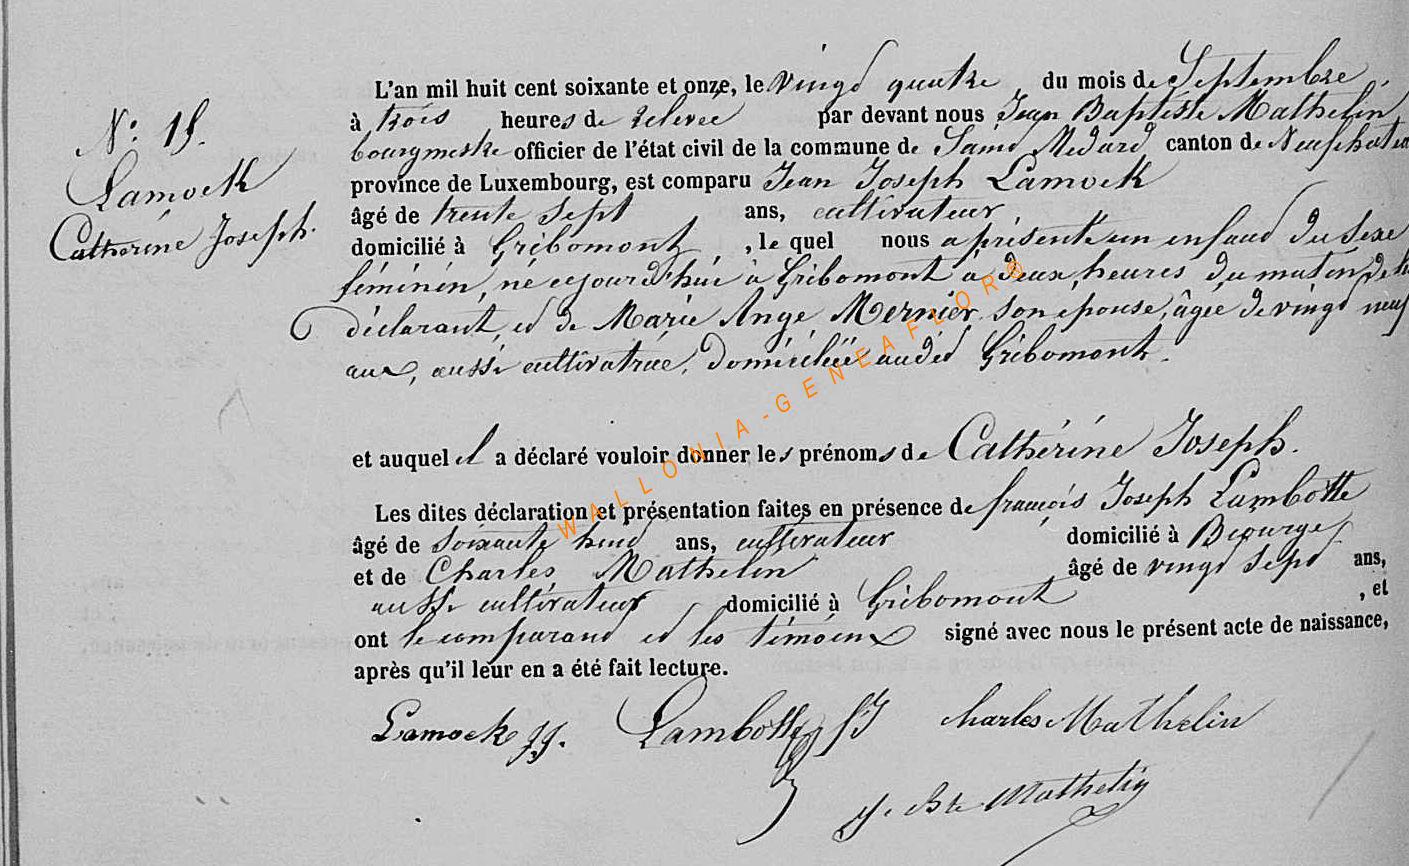 N° 15.
Lamock
Catherine Joseph.
L'an mil huit cent soixante et onze, le vingt quatre du mois de Septembre
à trois heures de relevée par devant nous Jean Baptiste Mathelin
bourgmestre officier de l'état civil de la commune de Saint Médard canton de Neufchateau
province de Luxembourg, est comparu Jean Joseph Lamock
âgé de trente sept ans, cultivateur,
domicilié à Gribomont, le quel nous a présenté un enfant du sexe
féminin, né cejourd'hui à Gribomont à deux heures du matin, de lui
déclarant, et de Marie Ange Mernier son épouse, âgée de vingt neuf
ans, aussi cultivatrice, domiciliée audit Gribomont.
et auquel il a déclaré vouloir donner les prénoms de Cathérine Joseph.
Les dites déclaration et présentation faites en présence de françois Joseph Lambotte
âgé de soixante huit ans, cultivateur domicilié à Biourge
et de Charles Mathelin âgé de vingt sept ans,
aussi cultivateur domicilié à Gribomont, et
ont le comparant et les témoins signé avec nous le présent acte de naissance,
après qu'il leur en a été fait lecture.
Lamock JJ. Lambotte fJ Charles Mathelin
J. Bte Mathelin
WALLONIA-GENEAFLOR®